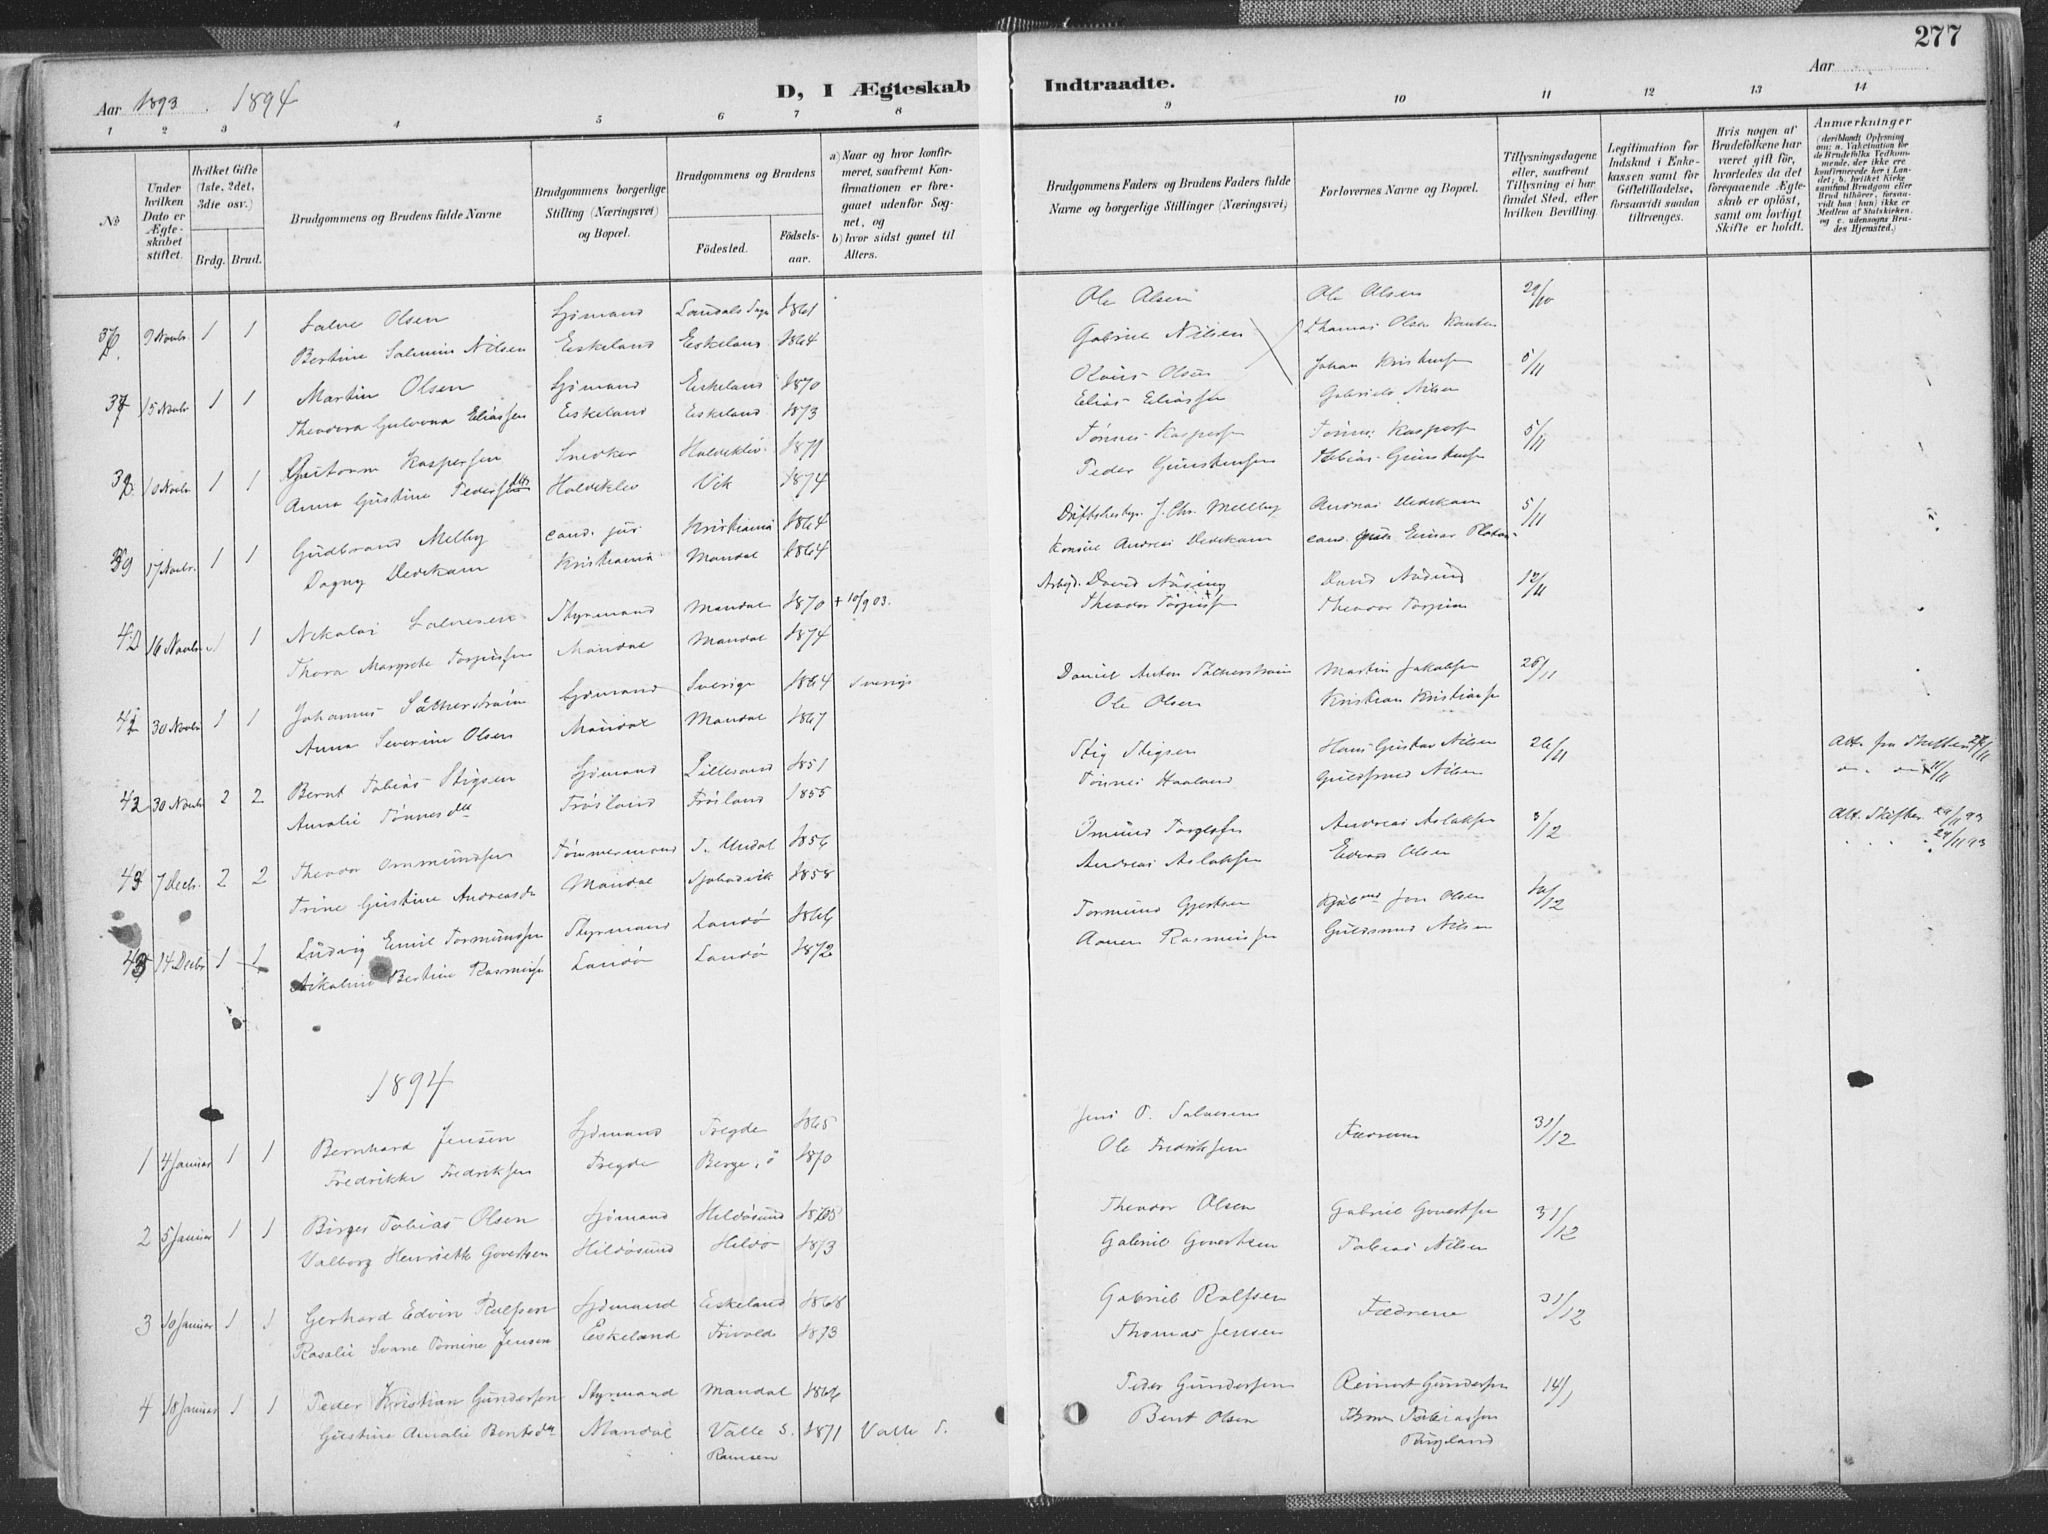 277
Aar 1893. 1894
D, I Ægteskab Indtraadte.
Aar
1 2 3 4 5 6 7 8 9 10 11 12 13 14
No
Under hvilken Dato er Ægteskabet stiftet.
Hvilket Gifte (1ste, 2det, 3die osv.)
Brdg. Brud.
Brudgommens og Brudens fulde Navne
Brudgommens borgerlige Stilling (Næringsvei) og Bopæl.
Brudgommens og Brudens
Födested.
Födselsaar.
a) Naar og hvor konfirmeret, saafremt Konfirmationen er foregaaet udenfor Sognet, og
b) hvor sidst gaaet til Alters.
Brudgommens Faders og Brudens Faders fulde Navne og borgerlige Stillinger (Næringsvei)
Forlovernes Navne og Bopæl.
Tillysningsdagene eller, saafremt Tillysning ei har fundet Sted, efter hvilken Bevilling.
Legitimation for Indskud i Enkekassen samt for Giftetilladelse, forsaavidt saadan tiltrænges.
Hvis nogen af Brudefolkene har været gift för, hvorledes da det foregaaende Ægteskab er oplöst, samt om lovligt Skifte er holdt.
Anmærkninger (deriblandt Oplysning om; a. Vakcination for de Brudefolks Vedkommende, der ikke ere konfirmerede her i Landet; b. hvilket Kirkesamfund Brudgom eller Brud tilhörer, forsaavidt han (hun) ikke er Medlem af Statskirken, og c. udensogns Brudes Hjemsted.)
9 Novbr 1 1 Salve Olsen Sjømand Landals Sogn 1861 Ole Olsen Ole Olsen 29/10
Bertine Salmine Nilsen Eskeland Eskeland 1864 Gabriel Nilsen Thomas Olsen
15 Novbr 1 1 Martin Olsen Sjømand Eskeland 1870 Olaus Olsen Johan Kristensen 5/11
Theodora Gulovna Eliassen Eskeland Eskeland 1873 Elias Eliassen Gabriel Nilsen
10 Novbr 1 1 Guttorm Kaspersen Snedker Holdeklev 1871 Tønnes Kaspersen Tønnes Kaspersen 5/11
Anna Gustine Pedersen Holdeklev Vik 1874 Peder Gunstensen Tobias Gunstensen
39 17 Novbr. 1 1 Gudbrand Melby cand. jur Kristiania 1864 Driftsbestyr. J. Chr. Mellby Andreas Vedekam 5/11
Dagny Vedekam Kristiania Mandal 1864 Konsul Andreas Vedekam cand. Einar
40 16 Novbr. 1 1 Nikolai Salvesen Styrmand Mandal 1870 + 10/9 03. Arbejd. David David 12/11
Thora Margrete Torpusen Mandal Mandal 1874 Theodor Torpusen Theodor Torpusen
30 Novbr 1 1 Johannes Sätherström Sjømand Sverige 1864 Sverige Daniel Anton Sätherström Martin Jakobsen 26/11
Anna Severine Olsen Mandal Mandal 1867 Ole Olsen Kristian Kristiansen
42 30 Novbr 2 2 Bernt Tobias Stigsen Sjømand Lillesand 1851 Stig Stigsen Hans Gustav Nilsen 26/11 Att. fra Skiften
Amalie Tønnesdtr Frøsland Frøsland 1855 Tønnes Haaland Guldsmed Nilsen
43 7 Decb. 2 2 Theodor Ommundsen Tømmermand S. Undal 1856 Omund Andreas Aslaksen 3/12 Att. Skiften 29/11 93
Trine Gustine Andreasdtr Mandal 1858 Andreas Aslaksen Edvard Olsen 29/11 93
14 Decbr 1 1 Ludvig Emil Tormundsen Styrmand Landø 1866 Tormund Gjertsen Kjøbmd Jon Olsen 10/12
Nikoline Bertine Rasmussen Landø Landø 1872 Aanen Rasmussen Guldsmed Nilsen
1894
1 4 Januar 1 1 Bernhard Jensen Sjømand Tregde 1865 Jens T. Salvesen Fædrene 31/12
Fredrikke Fredriksen Tregde Berge, ö 1870 Ole Fredriksen
2 5 Januar 1 1 Birger Tobias Olsen Sjømand Hildøsund Theodor Olsen Gabriel Govertsen 31/12
Valborg Henriette Govertsen Hildøsund Hildø 1873 Gabriel Govertsen Tobias Nilsen
3 10 Januar 1 1 Gerhard Edvin Ralfsen Sjømand Eskeland 1868 Gabriel Ralfsen Fædrene 31/12
Rosalie Svane Tomine Jensen Eskeland Frivold 1873 Thomas Jensen
4 18 Januar 1 1 Peder Kristian Gundersen Styrmand Mandal 1866 Peder Gundersen Reinert Gundersen 14/1
Gustine Amalie Bentsdtr Mandal Valle S. 1871 Valle S. Bent Olsen Tobiassen
Ramsen